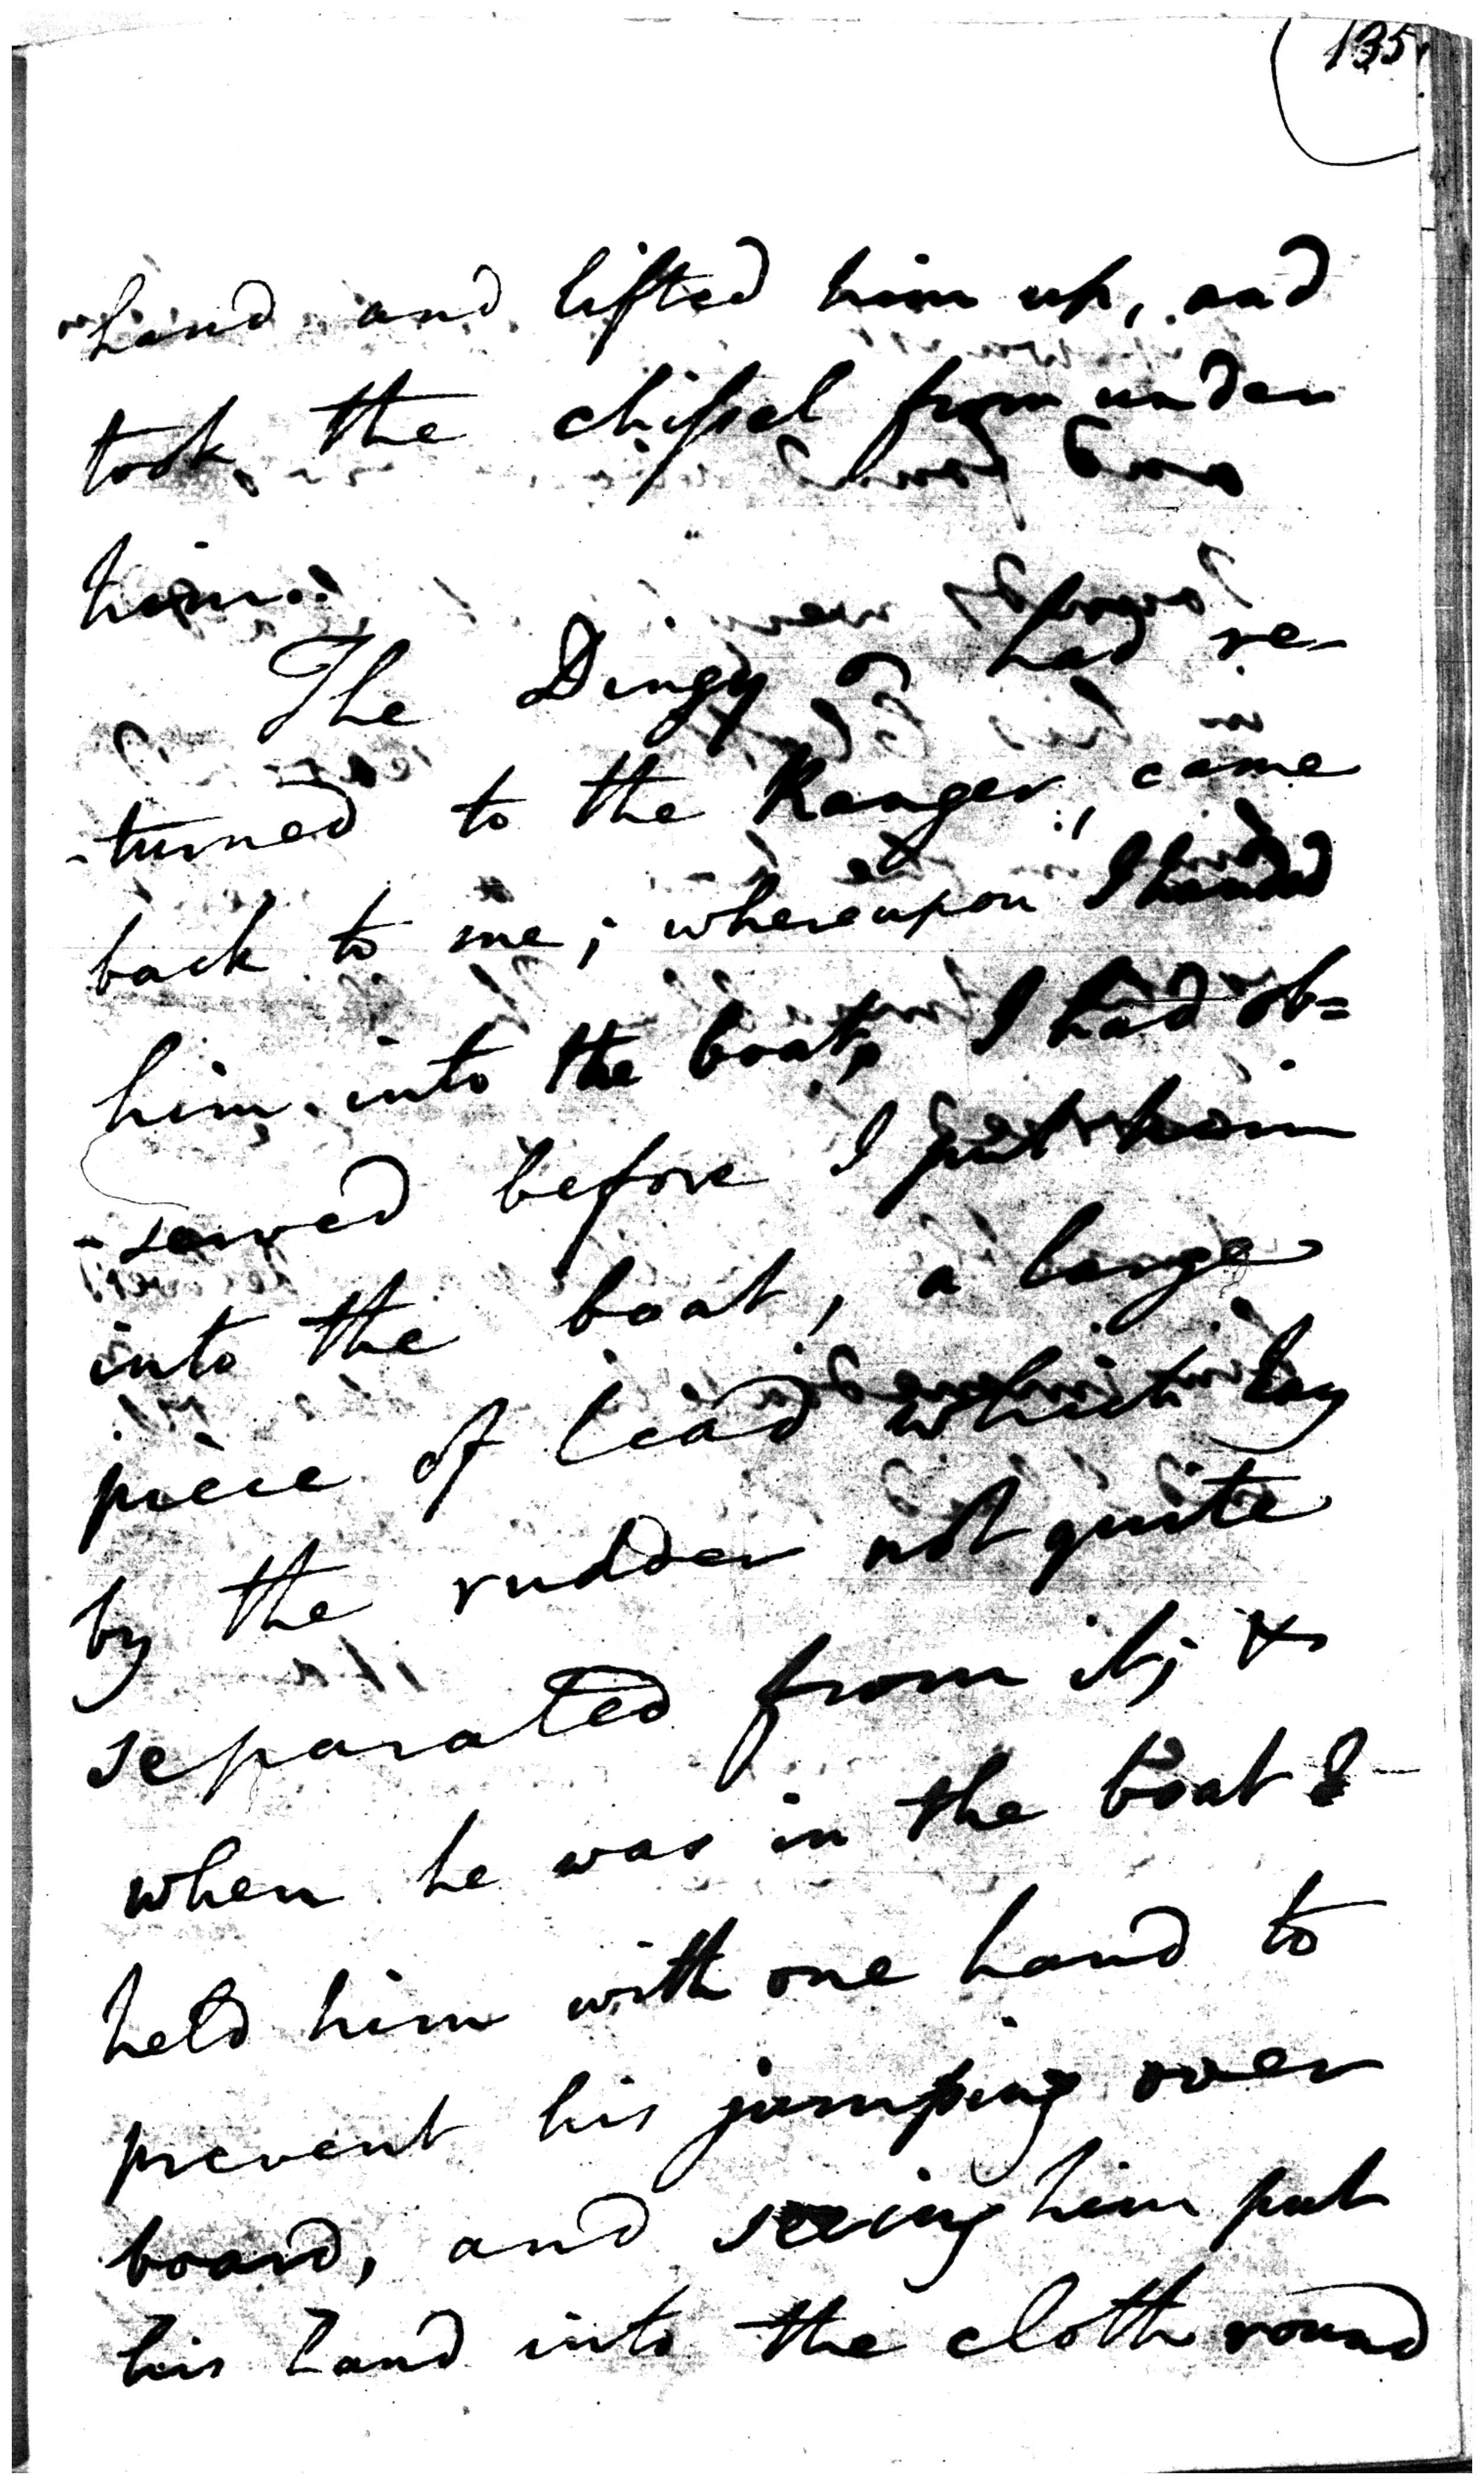 135
hand and lifted him up, and
took the chissel from under
him.
The Dingy had re-
-turned to the Ranger, came
back to me; whereupon I handed
him into the boat, I had ob=
-served before I put him
into the boat, a large
piece of lead which lay
by the rudder not quite
separated from it; &
when he was in the boat I
held him with one hand to
prevent his jumping over
board, and seeing him put
his hand into the cloth round